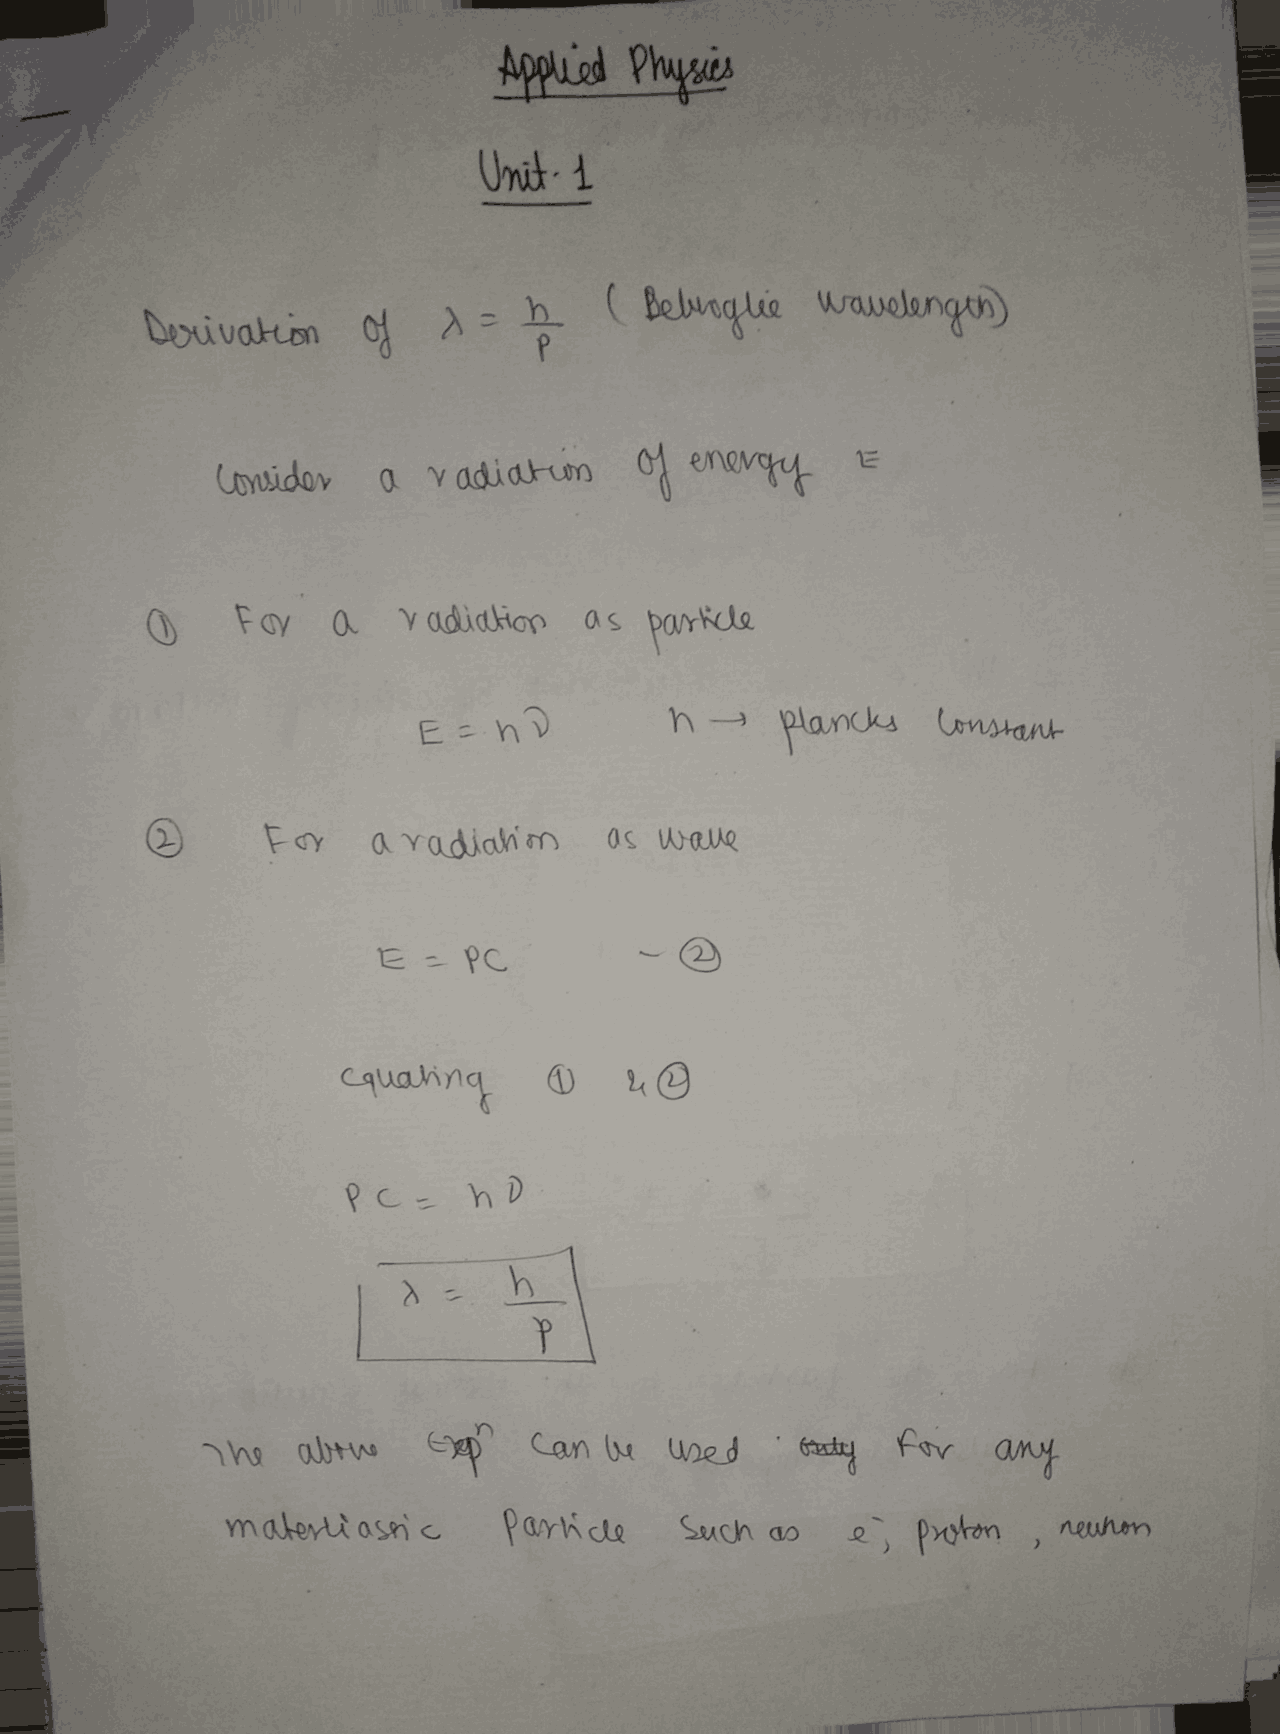 Applied Physics
Unit. 1
Derivation of λ = h/p ( Bebroglie wavelength)
Consider a radiation of energy E
① For a radiation as particle
E = hν h → plancks constant
② For a radiation as wave
E = PC - ②
equating ① & ②
PC = hν
λ = h/p
The above expⁿ can be used only for any
Particle such as e⁻, proton, neutron